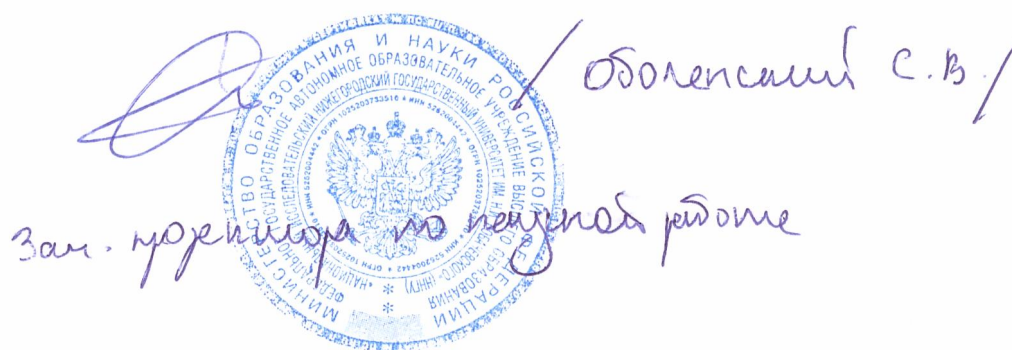 / Оболенский С.В. /
Зам. проректора по научной работе
МИНИСТЕРСТВО ОБРАЗОВАНИЯ И НАУКИ РОССИЙСКОЙ ФЕДЕРАЦИИ
ФЕДЕРАЛЬНОЕ ГОСУДАРСТВЕННОЕ АВТОНОМНОЕ ОБРАЗОВАТЕЛЬНОЕ УЧРЕЖДЕНИЕ ВЫСШЕГО ОБРАЗОВАНИЯ
«НАЦИОНАЛЬНЫЙ ИССЛЕДОВАТЕЛЬСКИЙ НИЖЕГОРОДСКИЙ ГОСУДАРСТВЕННЫЙ УНИВЕРСИТЕТ ИМ. Н.И. ЛОБАЧЕВСКОГО» (ННГУ)
ОГРН 1025203733510 * ИНН 5262004442